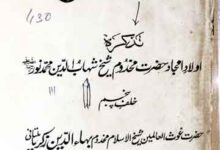 430
تذکرہ
اولادِ امجاد حضرت مخدوم شیخ شہاب الدین محمد نور
خلف پنجم
حضرت غوث العالمین شیخ الاسلام مخدوم بہاء الدین زکریا ملتانی